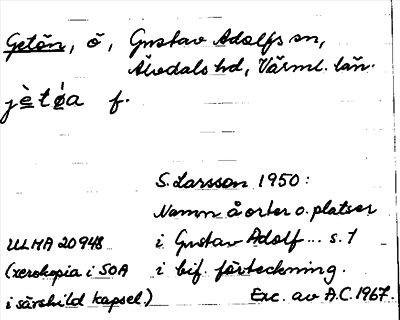 Getön, ö, Gustav Adolfs sn,
Älvdals hd, Värml. län.
jètøa f.
S. Larsson 1950:
Namn å orter o. platser
ULMA 20948 i Gustav Adolf... s. 1
(xerokopia i SOA i bif. förteckning.
i särskild kapsel) Exc. av A.C. 1967.